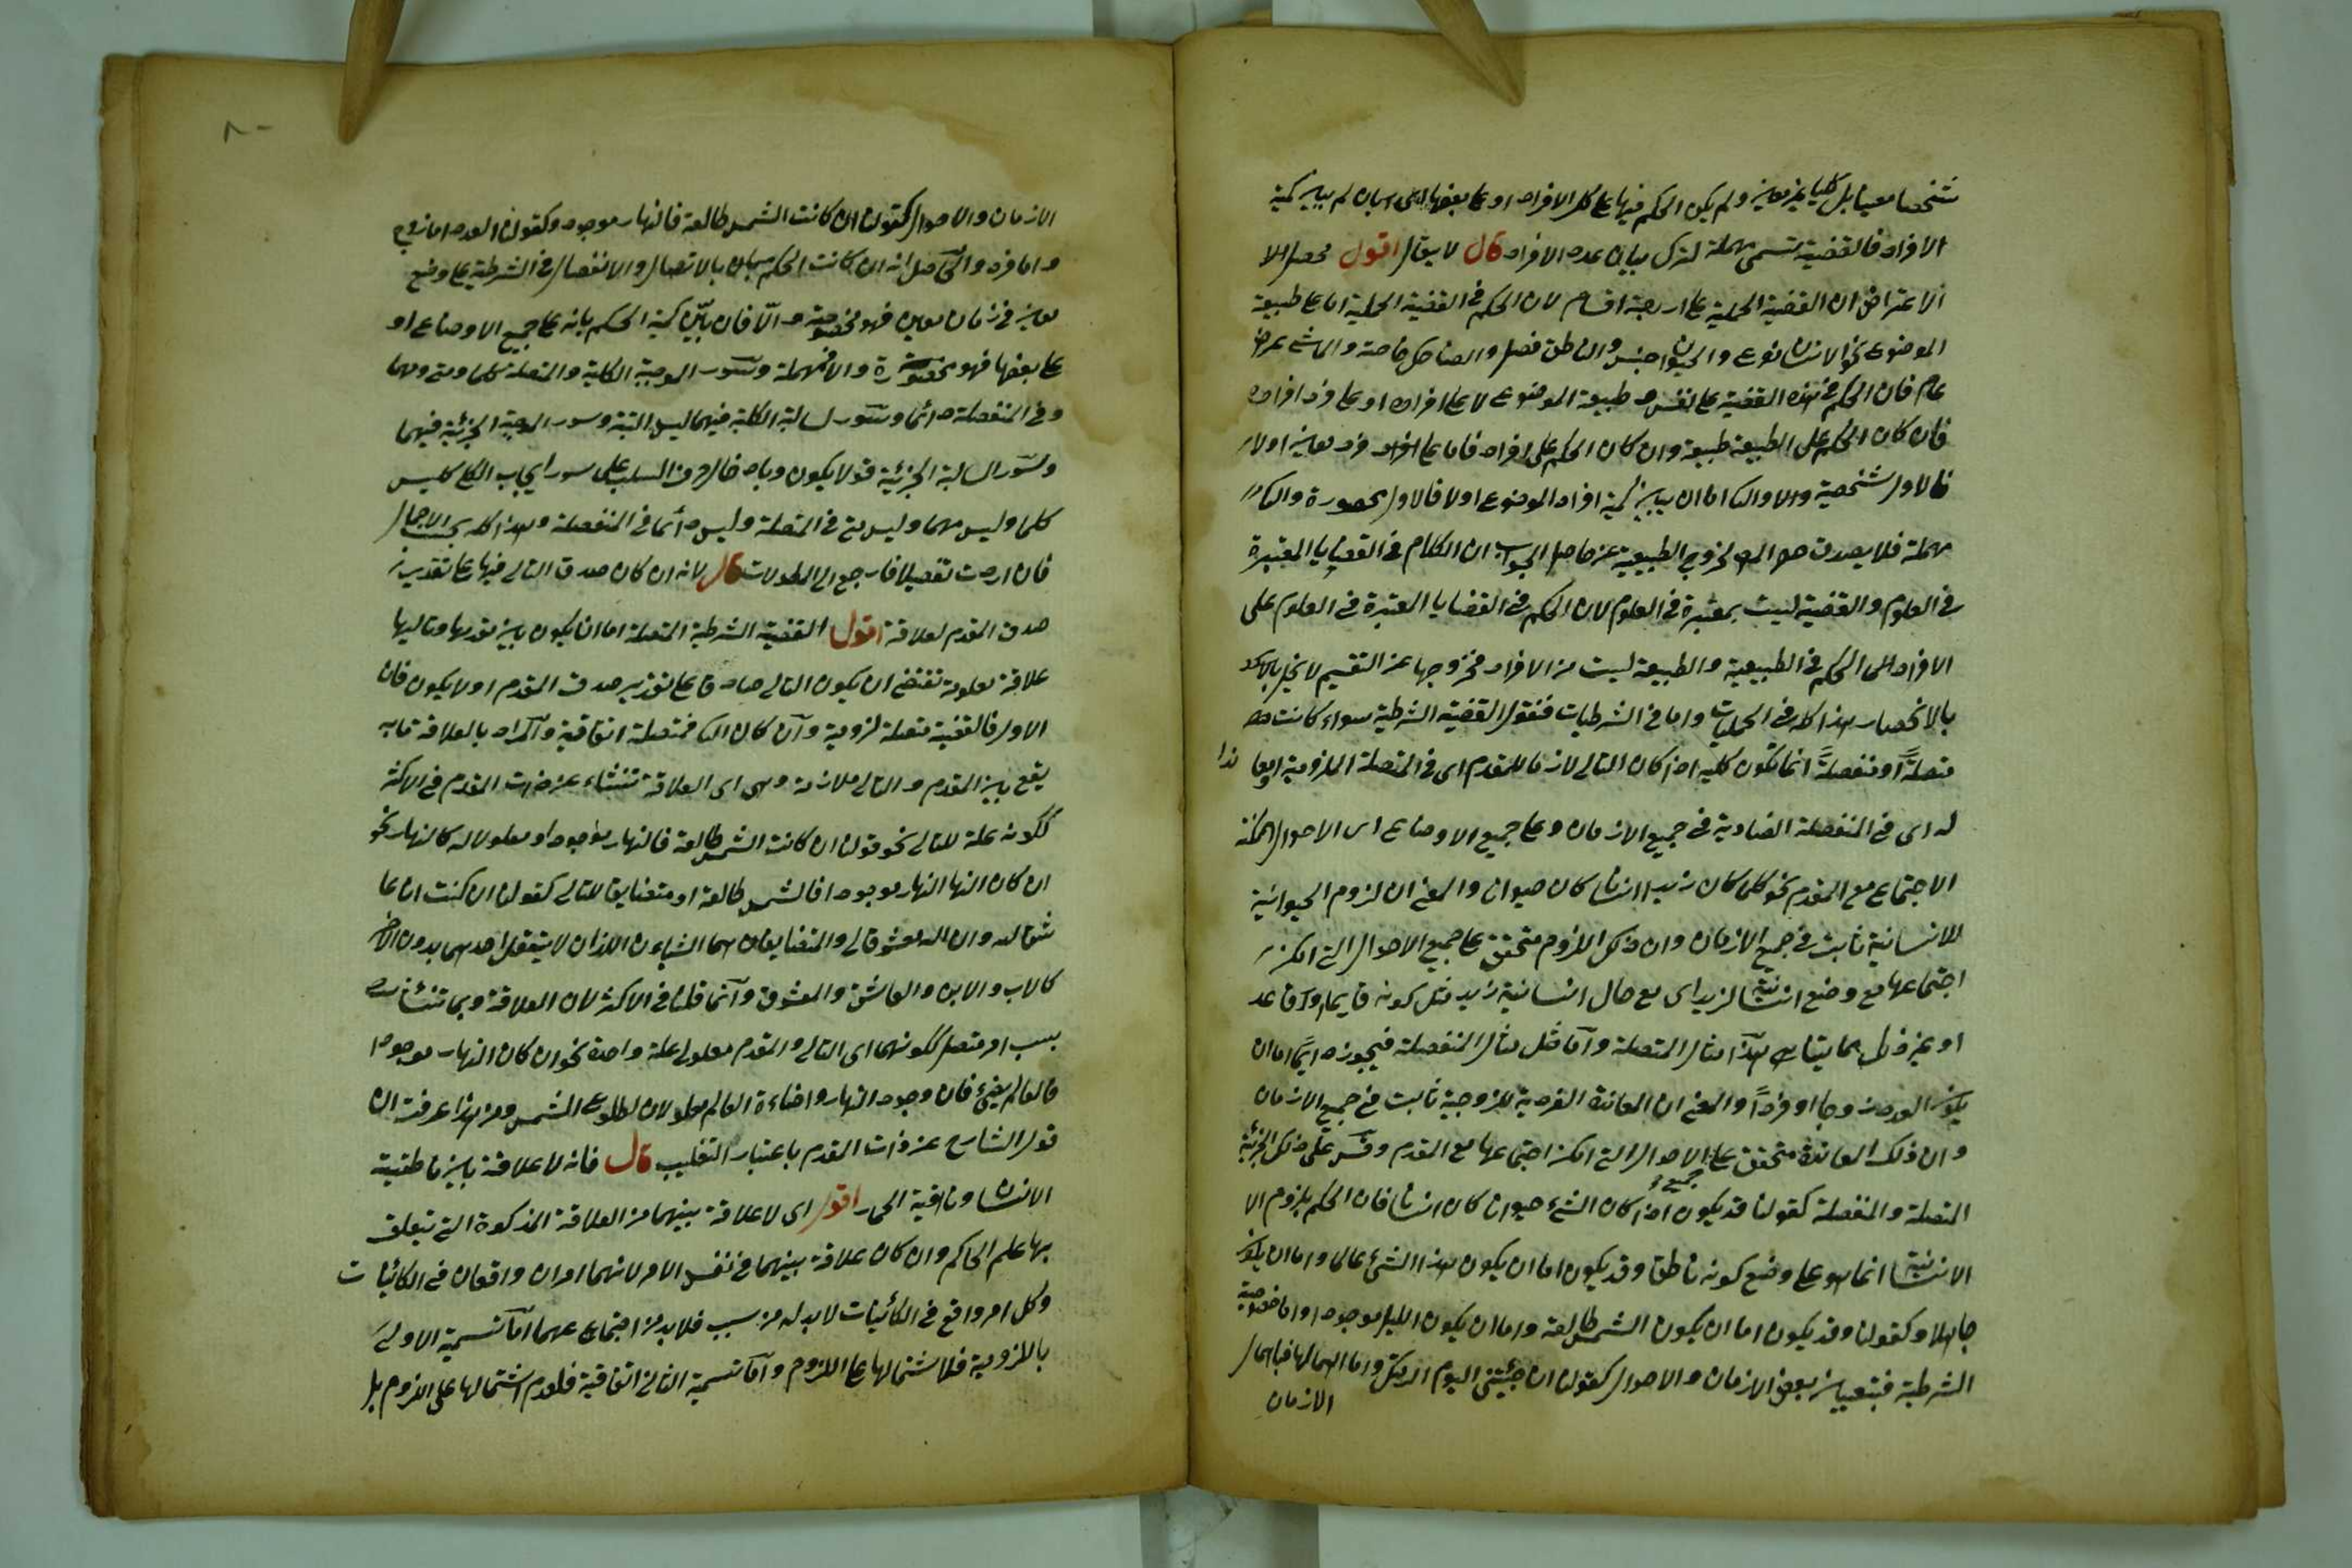 شخصا معينا بل كليا غير معين ولم يكن الحكم فيها على كل الافراد او على بعضها اى ان لم يبين كمية
الافراد فالقضية تسمى مهملة لترك بيان عدد الافراد قال لا يقال اقول محصل الا
الاعتراض ان القضية الحملية على اربعة اقسام لان الحكم فى القضية الحملية اما على طبيعة
الموضوع نحو الانسان نوع والحيوان جنس والناطق فصل والضاحك خاصة والماشى عرض
عام فان الحكم فى هذه القضية على نفس طبيعة الموضوع لا على افراده او على فرد افراده
فان كان الحكم على الطبيعة طبيعية وان كان الحكم على افراده فاما على افراد فرد معين اولا
فالاول شخصية والا و اما ان يبين كمية افراد الموضوع اولا فالاول محصورة والثانى
مهملة فلا يصدق لخروج الطبيعية عنه حاصل الجواب ان الكلام فى القضايا المعتبرة
فى العلوم والقضية ليست بمعتبرة فى العلوم لان الحكم فى القضايا المعتبرة فى العلوم على
الافراد الحكم فى الطبيعية والطبيعة ليست من الافراد فخروجها عن التقسيم لا يخل
بالانحصار هذا كله فى الحمليات واما فى الشرطيات فنقول القضية الشرطية سواء كانت
متصلةً او منفصلةً انما تكون كلية اذا كان التالى لازما للمقدم اى فى المتصلة اللزومية او معاندا
له اى فى المنفصلة العنادية فى جميع الازمان وعلى جميع الاوضاع اى الاحوال الممكنة
الاجتماع مع المقدم نحو كلما كان زيد انسانا كان حيوانا والمعنى ان لزوم الحيوانية
للانسانية ثابت فى جميع الازمان وان ذلك اللزوم متحقق على جميع الاحوال التى امكن
اجتماعها مع وضع انسانية زيد اى مع حال انسانية زيد مثل كونه قايما او قاعد
او غير ذلك مما يتناهى هذا مثال المتصلة واما مثل مثال المنفصلة فيجوز دائما اما ان
يكون العدد زوجا او فردًا والمعنى ان المعاندة الفردية للزوجية ثابت فى جميع الازمان
وان ذلك المعاندة متحقق على جميع الاحوال التى امكن اجتماعها مع المقدم وقس على ذلك الجزئية
المتصلة والمنفصلة كقولنا قد يكون اذا كان الشئ حيوانا كان انسانا فان الحكم بلزوم الا
الانسانية انما هو على وضع كونه ناطقا وقد يكون اما ان يكون هذا الشئ عالما واما ان يكون
جاهلا وكقولنا وقد يكون اما ان يكون الشمس طالعة واما ان يكون الليل موجودا واما خصوصية
الشرطية فبتعيين بعض الازمان والاحوال كقولنا ان جئتنى اليوم اكرمتك واما اهمالها فباهمال
الازمان
٨٠
الازمان والاحوال كقولنا ان كانت الشمس طالعة فالنهار موجود وكقولنا العدد اما زوج
واما فرد والحاصل انه ان كانت الحكم بالاتصال والانفصال فى الشرطية على وضع
معين فى زمان معين فهو مخصوصة والّا فان بيّن كمية الحكم بانه على جميع الاوضاع او
على بعضها فهو محصورة والا فمهملة وسور الموجبة الكلية والمتصلة كلما ومتى ومهما
وفى المنفصلة دائما وسور السالبة الكلية فيهما ليس البتة وسور الموجبة الجزئية فيهما
وسور السالبة الجزئية قد لا يكون وبادخال حرف السلب على سور ايجاب الكلى كليس
كلما وليس مهما وليس متى فى المتصلة وليس دائما فى المنفصلة وهذا كله بحسب الاجمال
فان اردت تفصيلا فارجع الى المطولات قال لانه ان كان صدق التالى فيها على تقدير
صدق المقدم لعلاقة اقول القضية الشرطية المتصلة اما ان يكون بين مقدمها وتاليها
علاقة معلومة تقتضى ان يكون التالى صادقا على تقدير صدق المقدم اولا يكون فان
الاول فالقضية متصلة لزومية وان كان الثانى فمتصلة اتفاقية والمراد بالعلاقة ما به
يقع بين المقدم والتالى ملازمة وهى اى العلاقة تنشاء عن ذات المقدم فى الاكثر
لكونه علة للتالى نحو قولنا ان كانت الشمس طالعة فالنهار موجود او معلولا له كالنهار نحو
ان كان النها النهار موجودا فالشمس طالعة او متضايقا للتالى كقولنا ان كنت انا عا
شقا له وان له معشوقا لى والمتضايفان هما الشيئان اللذان لا يتعقل احدهما بدون الاخر
كالاب والابن والعاشق والمعشوق وانما قلنا فى الاكثر لان العلاقة ربما تنشاء
بسبب امر منفصل لكونهما اى التالى والمقدم معلولى علة واحدة نحو ان كان النهار موجودا
فالعالم يضئ فان وجود النهار واضاءة العالم معلولان لطلوع الشمس ومن هذا عرفت ان
قول الشارح عن ذات المقدم باعتبار التغليب قال فانه لا علاقة بين ناطقية
الانسان وناهقية الحمار اقول اى لا علاقة بينهما من العلاقة المذكورة التى تتعلق
بها علم الحاكم وان كان علاقة بينهما فى نفس الامر لانهما امران واقعان فى الكائنات
وكل امر واقع فى الكائينات لا بد له من سبب فلا بد من اجتماع عهما اما تسمية الاولى
باللزومية فلاشتمالها على اللزوم واما تسمية الثانى اتفاقية فلعدم اشتمالها على اللزوم بل